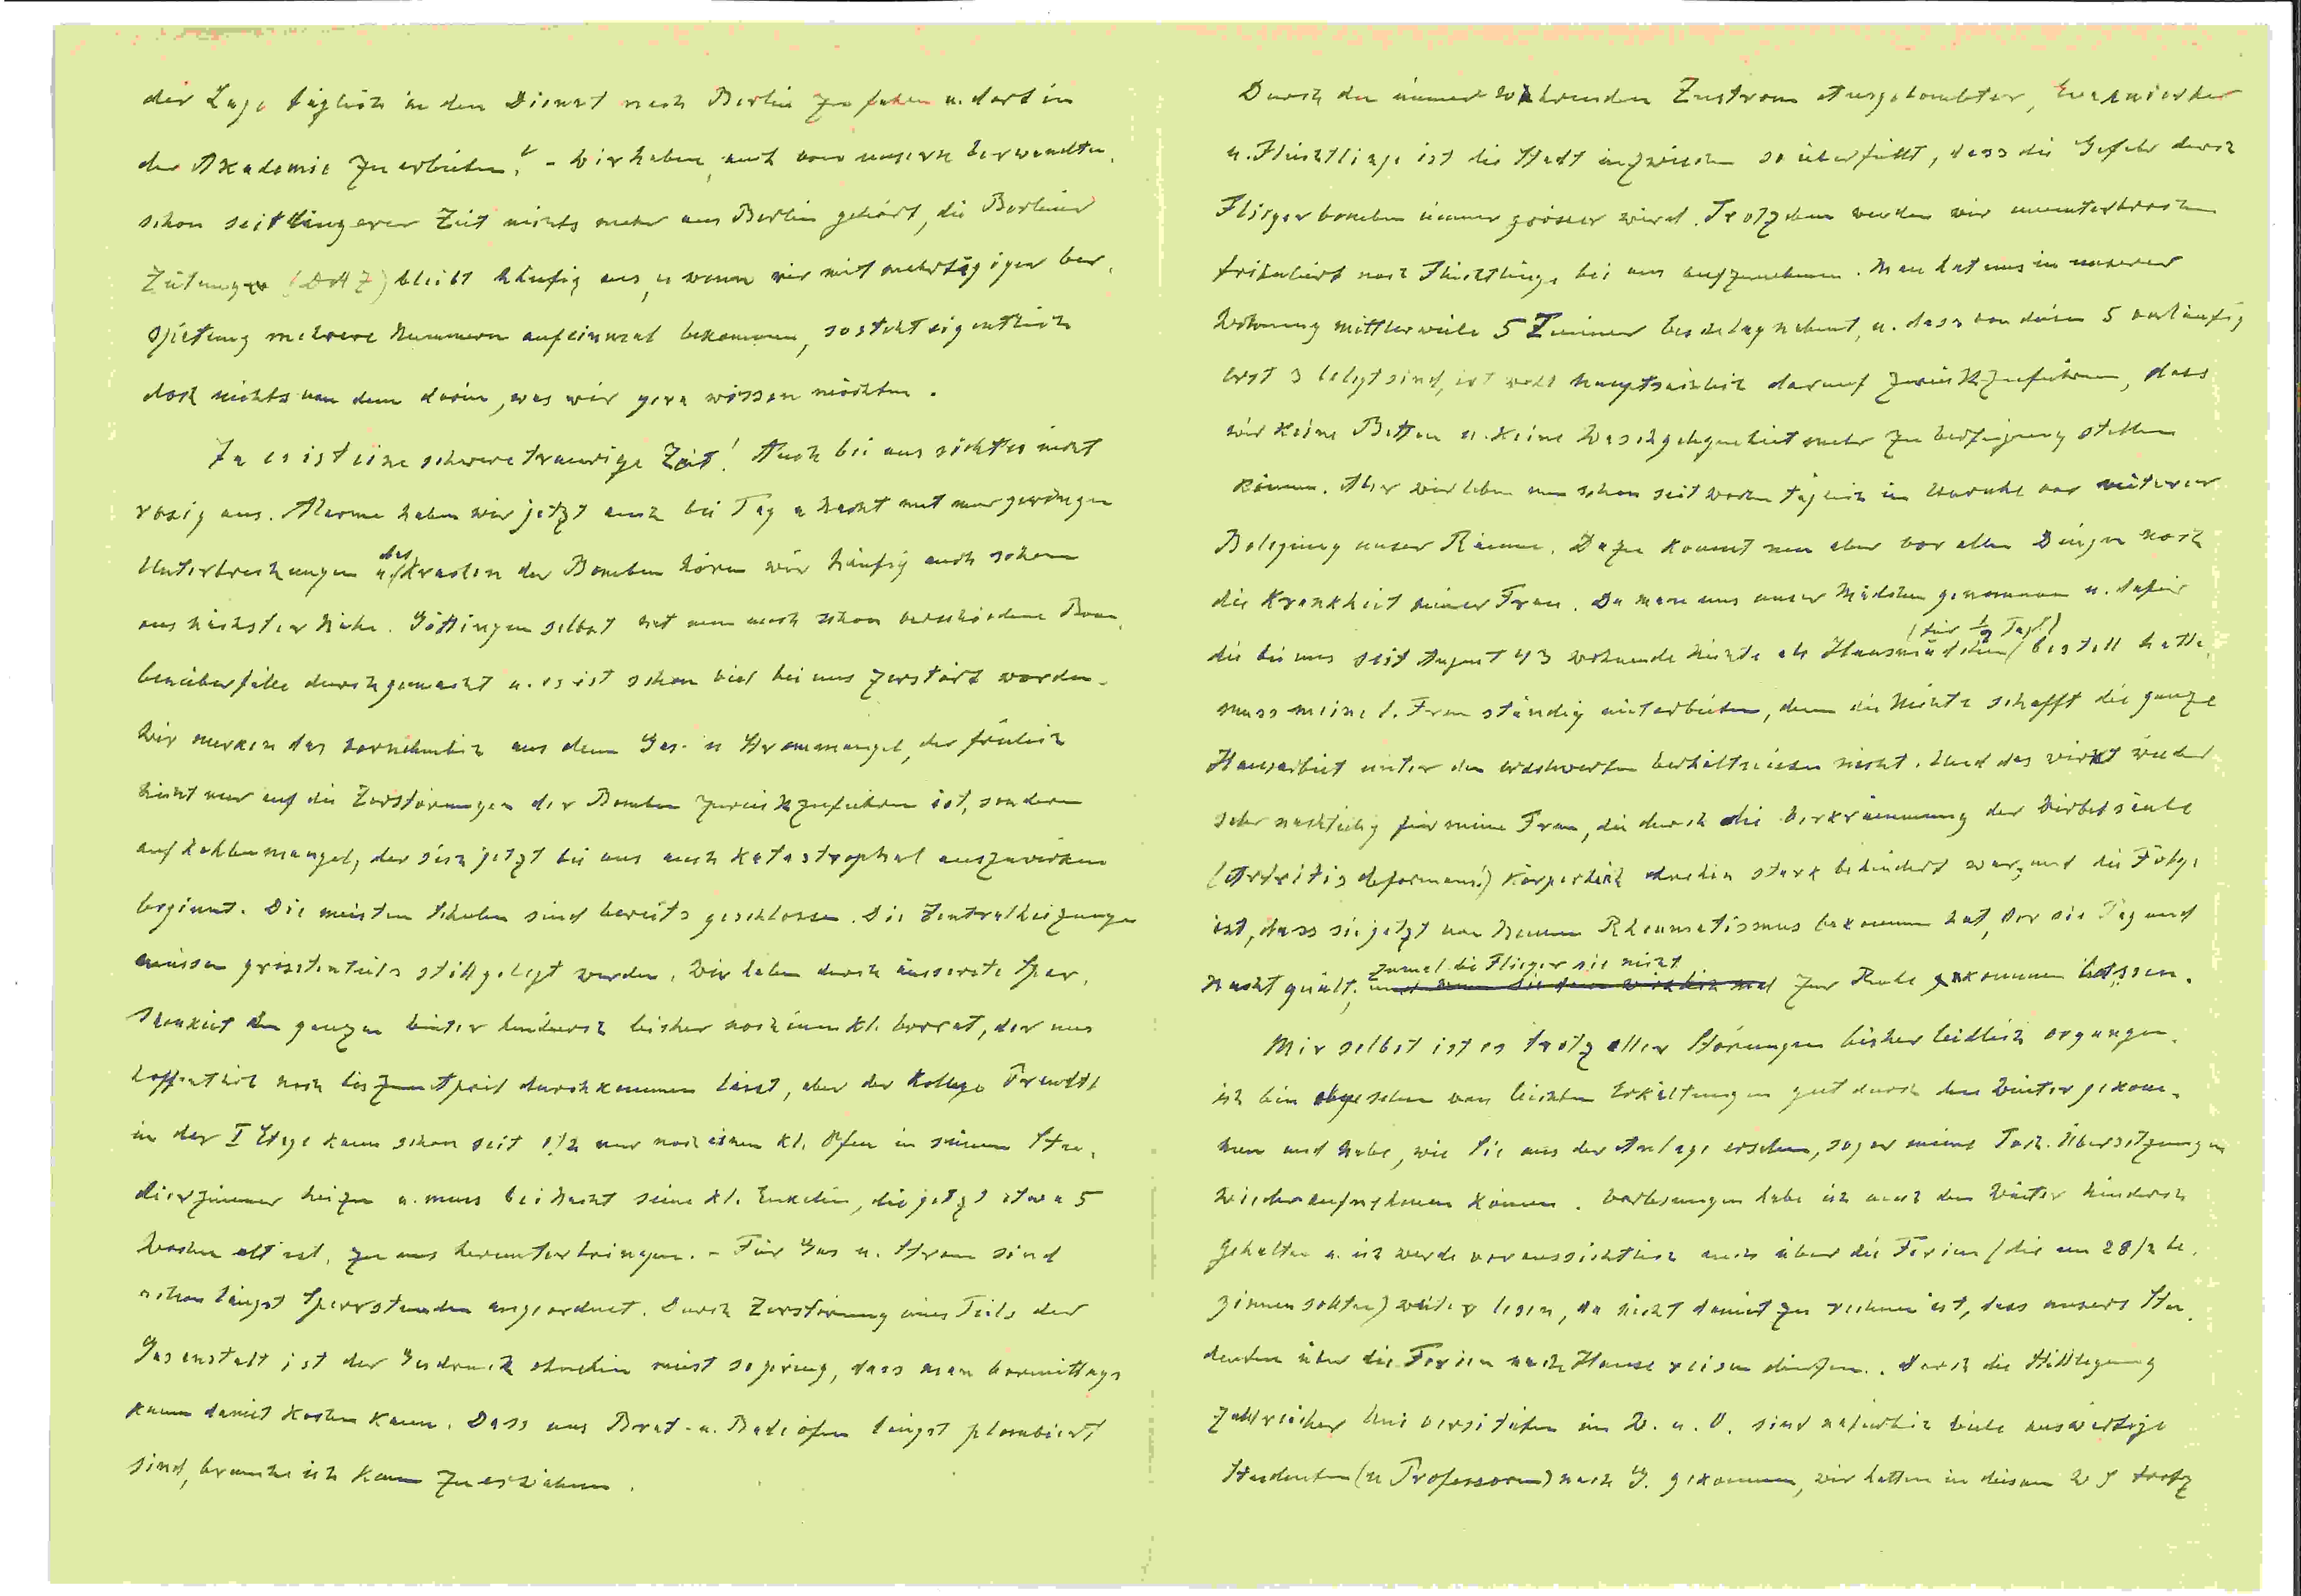 der Lage täglich in den Dienst nach Berlin zu fahren u. dort in
der Akademie zu arbeiten? – Wir haben auch von unsern Verwandten
schon seit längerer Zeit nichts mehr aus Berlin gehört, die Berliner
Zeitung (DAZ) bleibt häufig aus, u. wenn wir mit mehrtägiger Ver-
spätung mehrere Nummern aufeinmal bekommen, so steht eigentlich
doch nichts von dem darin, was wir gern wissen möchten.
Ja es ist eine schwere traurige Zeit! Auch bei uns sieht es nicht
rosig aus. Alarme haben wir jetzt auch bei Tag u Nacht mit nur geringen
Unterbrechungen u. das Krachen der Bomben hören wir häufig auch schon
aus nächster Nähe. Göttingen selbst hat nun auch schon verschiedene Bom-
benüberfälle durchgemacht u. es ist schon viel bei uns zerstört worden.
Wir merken das vornehmlich aus dem Gas- u Strommangel, der freilich
nicht nur auf die Zerstörungen der Bomben zurückzuführen ist, sondern
auf Kohlenmangel, der sich jetzt bei uns auch katastrophal auszuwirken
beginnt. Die meisten Schulen sind bereits geschlossen. Die Zentralheizungen
müssen grösstenteils stillgelegt werden. Wir haben durch äusserste Spar-
samkeit den ganzen Winter hindurch bisher noch einen kl. Vorrat, der uns
hoffentlich noch bis zum April durchkommen lässt, aber der Kollege Prandtl
in der I Etage kann schon seit 1/2 nur noch einen kl. Ofen in seinem Stu-
dierzimmer heizen u. muss bei Nacht seine kl. Enkelin, die jetzt etwa 5
Wochen alt ist, zu uns herunterbringen. – Für Gas u. Strom sind
schon längst Sperrstunden angeordnet. Durch Zerstörung eines Teils der
Gasanstalt ist der Gasdruck ohnehin meist so gering, dass man vormittags
kaum damit kochen kann. Dass uns Brat- u. Badeöfen längst plombiert
sind, brauche ich kaum zu erwähnen.
Durch den immer währenden Zustrom Ausgebombter, Evakuierter
u. Flüchtlinge ist die Stadt inzwischen so überfüllt, dass die Gefahr durch
Fliegerbomben immer grösser wird. Trotzdem werden wir ununterbrochen
tribuliert noch Flüchtlinge bei uns aufzunehmen. Man hat uns in unserer
Wohnung mittlerweile 5 Zimmer beschlagnahmt, u. dass von diesen 5 vorläufig
erst 3 belegt sind, ist wohl hauptsächlich darauf zurückzuführen, dass
wir keine Betten u. keine Waschgelegenheit mehr zu Verfügung stellen
können. Aber wir leben nun schon seit Wochen täglich in Unruhe vor weiterer
Belegung unser Räume. Dazu kommt nun aber vor allen Dingen noch
die Krankheit meiner Frau. Da man uns unser Mädchen genommen u. dafür
die bei uns seit August 43 wohnende Nichte als Hausmädchen (für 1/2 Tag!) bestellt hatte,
muss meine l. Frau ständig mitarbeiten, denn die Nichte schafft die ganze
Hausarbeit unter den erschwerten Verhältnissen nicht. Und das wirkt wieder
sehr nachteilig für meine Frau, die durch die Verkrümmung der Wirbelsäule
(Arthritis deformans!) körperlich ohnehin stark behindert war, und die Folge
ist, dass sie jetzt von Neuem Rheumatismus bekommen hat, der sie Tag und
Nacht quält, zumal die Flieger sie nicht zur Ruhe kommen lassen.
Mir selbst ist es trotz aller Störungen bisher leidlich ergangen.
ich bin abgesehen von leichten Erkältungen gut durch den Winter gekom-
men und habe, wie Sie aus der Anlage ersehen, sogar meine Toch. Übersetzungen
wiederaufnehmen können. Vorlesungen habe ich auch den Winter hindurch
gehalten u. ich werde voraussichtlich auch über die Ferien (die am 28/2 be-
ginnen sollten) weiter lesen, da nicht damit zu rechnen ist, dass unsere Stu-
denten über die Ferien nach Hause reisen dürfen. Durch die Stilllegung
zahlreicher Universitäten im W. u. O. sind natürlich viele auswärtige
Studenten (u Professoren) nach G. gekommen, wir hatten in diesem WS trotz